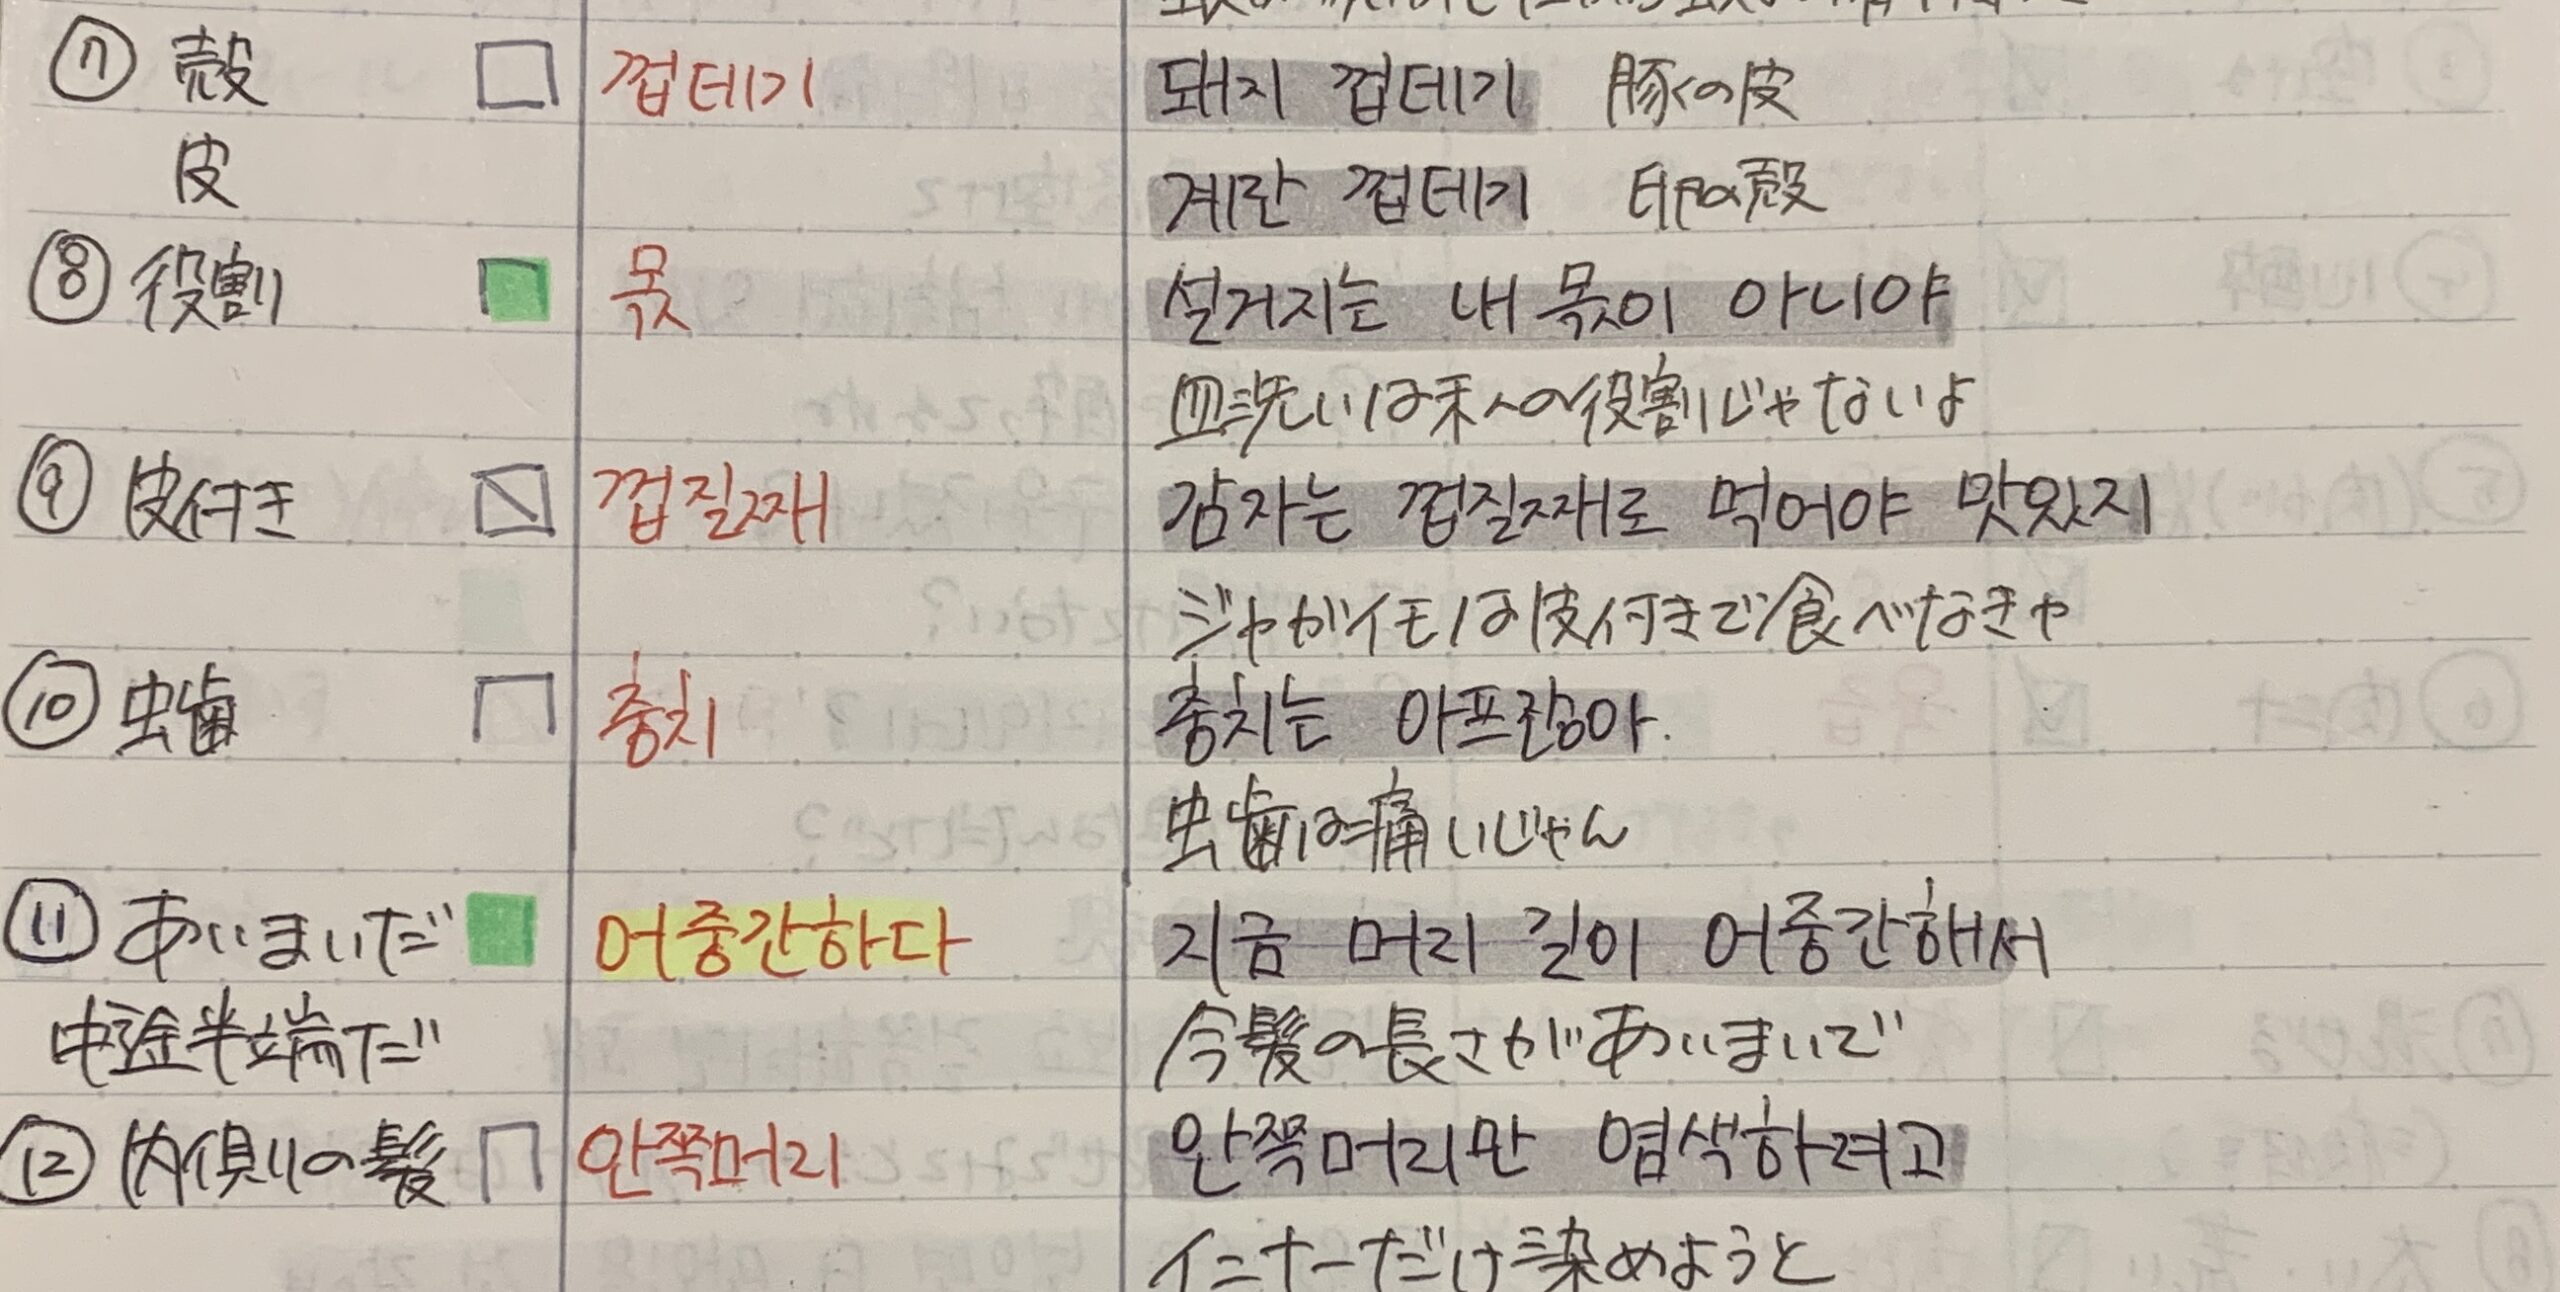 ⑦ 殻 껍데기 돼지 껍데기 豚の皮
皮 계란 껍데기 卵の殻
⑧ 役割 몫 설거지는 내 몫이 아니야
皿洗いは私の役割じゃないよ
⑨ 皮付き 껍질째 감자는 껍질째로 먹어야 맛있지
ジャガイモは皮付きで食べなきゃ
⑩ 虫歯 충치 충치는 아프잖아.
虫歯は痛いじゃん
⑪ あいまいだ 어중간하다 지금 머리 길이 어중간해서
中途半端だ 今髪の長さがあいまいで
⑫ 内側の髪 안쪽머리 안쪽머리만 염색하려고
インナーだけ染めようと